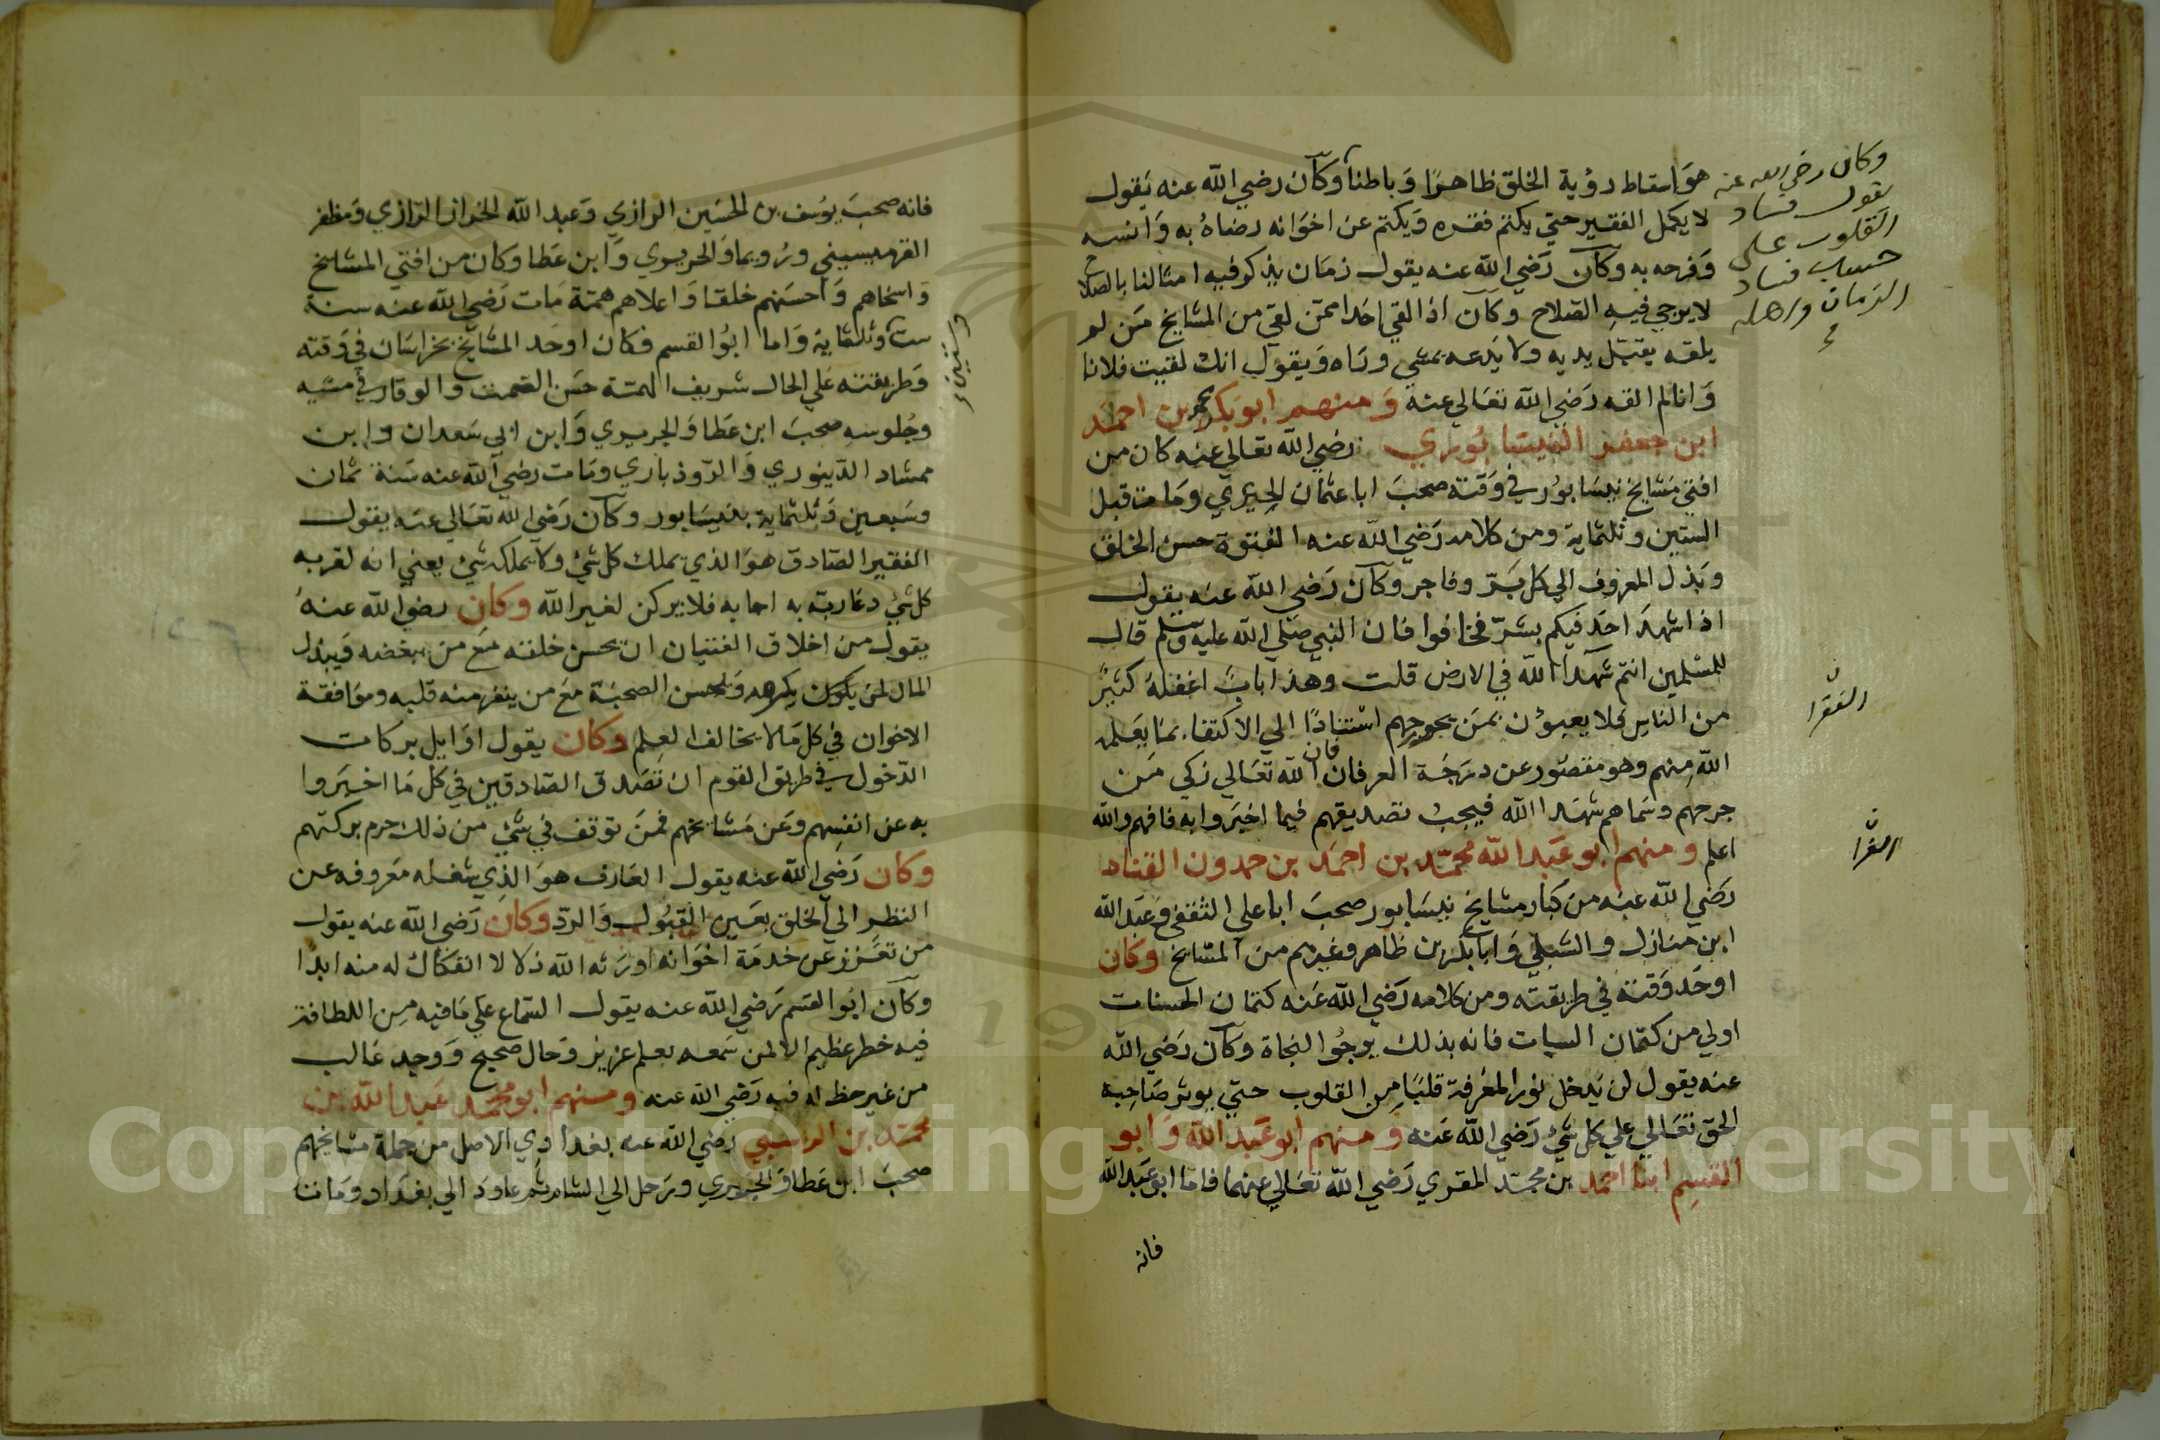 هو اسقاط رؤية الخلق ظاهرا وباطنا وكان رضي الله عنه يقول
لا يكمل الفقير حتي يكتم فقره ويكتم عن اخوانه رضاه به وانسه
وفرحه به وكان رضي الله عنه يقول زمان يذكر فيه امثالنا بالصلاح
لا يرجي فيه الصلاح وكان اذا لقي احدا ممن لقي من المشايخ من لم
يلقه يقبل يديه ولا يدعه يمشي وراه ويقول انك لقيت فلانا
وانا لم القه رضي الله تعالي عنه ومنهم ابو بكر محمد بن احمد
ابن جعفر النيسابوري رضي الله تعالي عنه كان من
افتي مشايخ نيسابور في وقته صحب ابا عثمان الحيري ومات قبل
الستين وثلثماية ومن كلامه رضي الله عنه الفتوة حسن الخلق
وبذل المعروف الي كل بر وفاجر وكان رضي الله عنه يقول
اذا شهد احد فيكم بشر فخافوا فان النبي صلي الله عليه وسلم قال
للمسلمين انتم شهدا الله في الارض قلت وهذا باب اغفله كثير
من الناس فلا يعبؤن بمن يجرحهم استنادا الي الاكتفا بما يعلمه
الله منهم وهو مقصور عن درجة العرفان فان الله تعالي زكي من
جرحهم وسماهم شهدا الله فيجب تصديقهم فيما اخبروا به فافهم والله
اعلم ومنهم ابو عبد الله محمد بن احمد بن حمدون الفتاد
رضي الله عنه من كبار مشايخ نيسابور صحب ابا علي الثقفي وعبد الله
ابن منازل والشبلي وابا بكر بن طاهر وغيرهم من المشايخ وكان
اوحد وقته في طريقته ومن كلامه رضي الله عنه كتمان الحسنات
اولي من كتمان السيات فانه بذلك يرجوا النجاة وكان رضي الله
عنه يقول لن يدخل نور المعرفة قلبا من القلوب حتي يوثر صاحبه
الحق تعالي علي كل شي رضي الله عنه ومنهم ابو عبد الله وابو
القسم ابنا احمد بن محمد المقري رضي الله تعالي عنهما فاما ابو عبد الله
فانه
وكان رضي الله عنه
يقول فساد
القلوب علي
حسب فساد
الزمان واهله
الفقرا
فانه صحب يوسف بن الحسين الرازي وعبد الله الخراز الرازي ومظفر
القرميسيني ورويما والجريري وابن عطا وكان من افتي المشايخ
واسخاهم واحسنهم خلقا واعلاهم همة مات رضي الله عنه سنة
ست وثلثماية واما ابو القسم فكان اوحد المشايخ بخراسان في وقته
وطريقته علي الحال شريف الهمة حسن الصمت والوقار في مشيه
وجلوسه صحب ابن عطا والجريري وابن ابي سعدان وابن
ممشاد الدينوري والروذباري ومات رضي الله عنه سنة ثمان
وسبعين وثلثماية بنيسابور وكان رضي الله تعالي عنه يقول
الفقير الصادق هو الذي يملك كل شي ولا يملكه شي يعني انه لقربه
كل شي دعا ربه به اجابه فلا يركن لغير الله وكان رضي الله عنه
يقول من اخلاق الفتيان ان يحسن خلقه مع من يبغضه ويبذل
المال لمن يكون يكرهه ويحسن الصحبة مع من ينفر منه قلبه وموافقة
الاخوان في كل ما لا يخالف العلم وكان يقول اوايل بركات
الدخول في طريق القوم ان تصدق الصادقين في كل ما اخبروا
به عن انفسهم وعن مشايخهم فمن توقف في شي من ذلك حرم بركتهم
وكان رضي الله عنه يقول العارف هو الذي شغله معروفه عن
النظر الي الخلق بعين القبول والرد وكان رضي الله عنه يقول
من تعزز عن خدمة اخوانه اورثه الله ذلا لا انفكاك له منه ابدا
وكان ابو القسم رضي الله عنه يقول السماع علي ما فيه من اللطافة
فيه خطر عظيم الا لمن سمعه بعلم عزيز وحال صحيح ووجد غالب
من غير حظ له فيه رضي الله عنه ومنهم ابو محمد عبد الله بن
محمد بن الراسبي رضي الله عنه بغدادي الاصل من جملة مشايخهم
صحب ابن عطا والجريري ورحل الي الشام ثم عاود الي بغداد ومات
وستين
Copyright © King Saud University